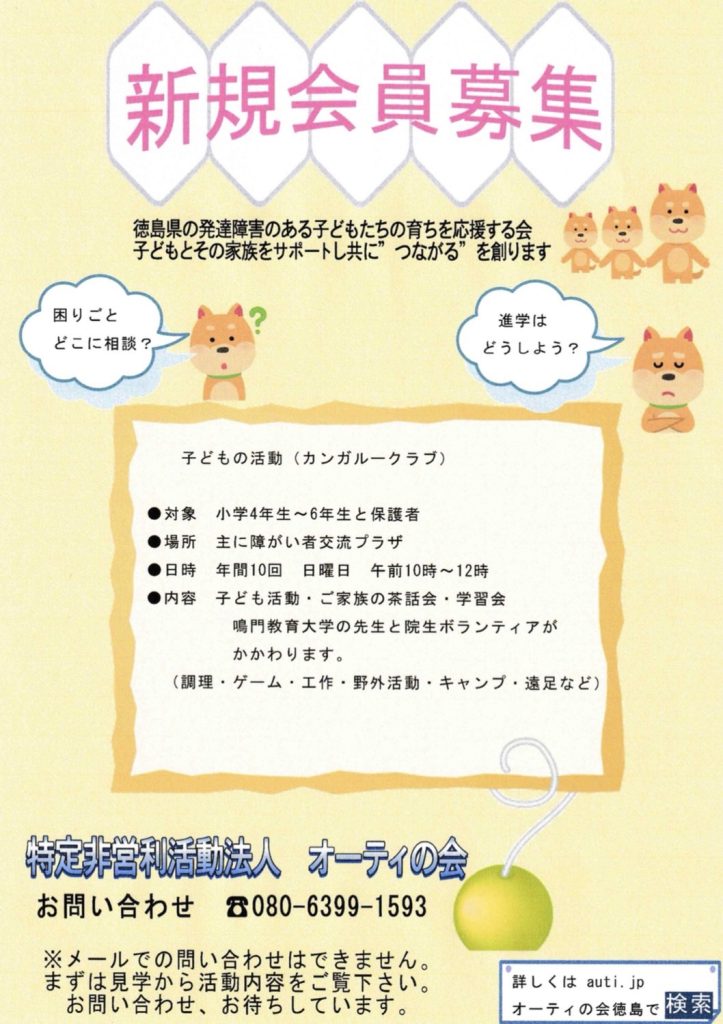 新規会員募集
徳島県の発達障害のある子どもたちの育ちを応援する会
子どもとその家族をサポートし共に”つながる”を創ります
困りごと
どこに相談？
?
進学は
どうしよう？
子どもの活動（カンガルークラブ）
●対象　小学4年生～6年生と保護者
●場所　主に障がい者交流プラザ
●日時　年間10回　日曜日　午前10時～12時
●内容　子ども活動・ご家族の茶話会・学習会
鳴門教育大学の先生と院生ボランティアが
かかわります。
（調理・ゲーム・工作・野外活動・キャンプ・遠足など）
特定非営利活動法人　オーティの会
お問い合わせ　☎080-6399-1593
※メールでの問い合わせはできません。
まずは見学から活動内容をご覧下さい。
お問い合わせ、お待ちしています。
詳しくは auti.jp
オーティの会徳島で 検索